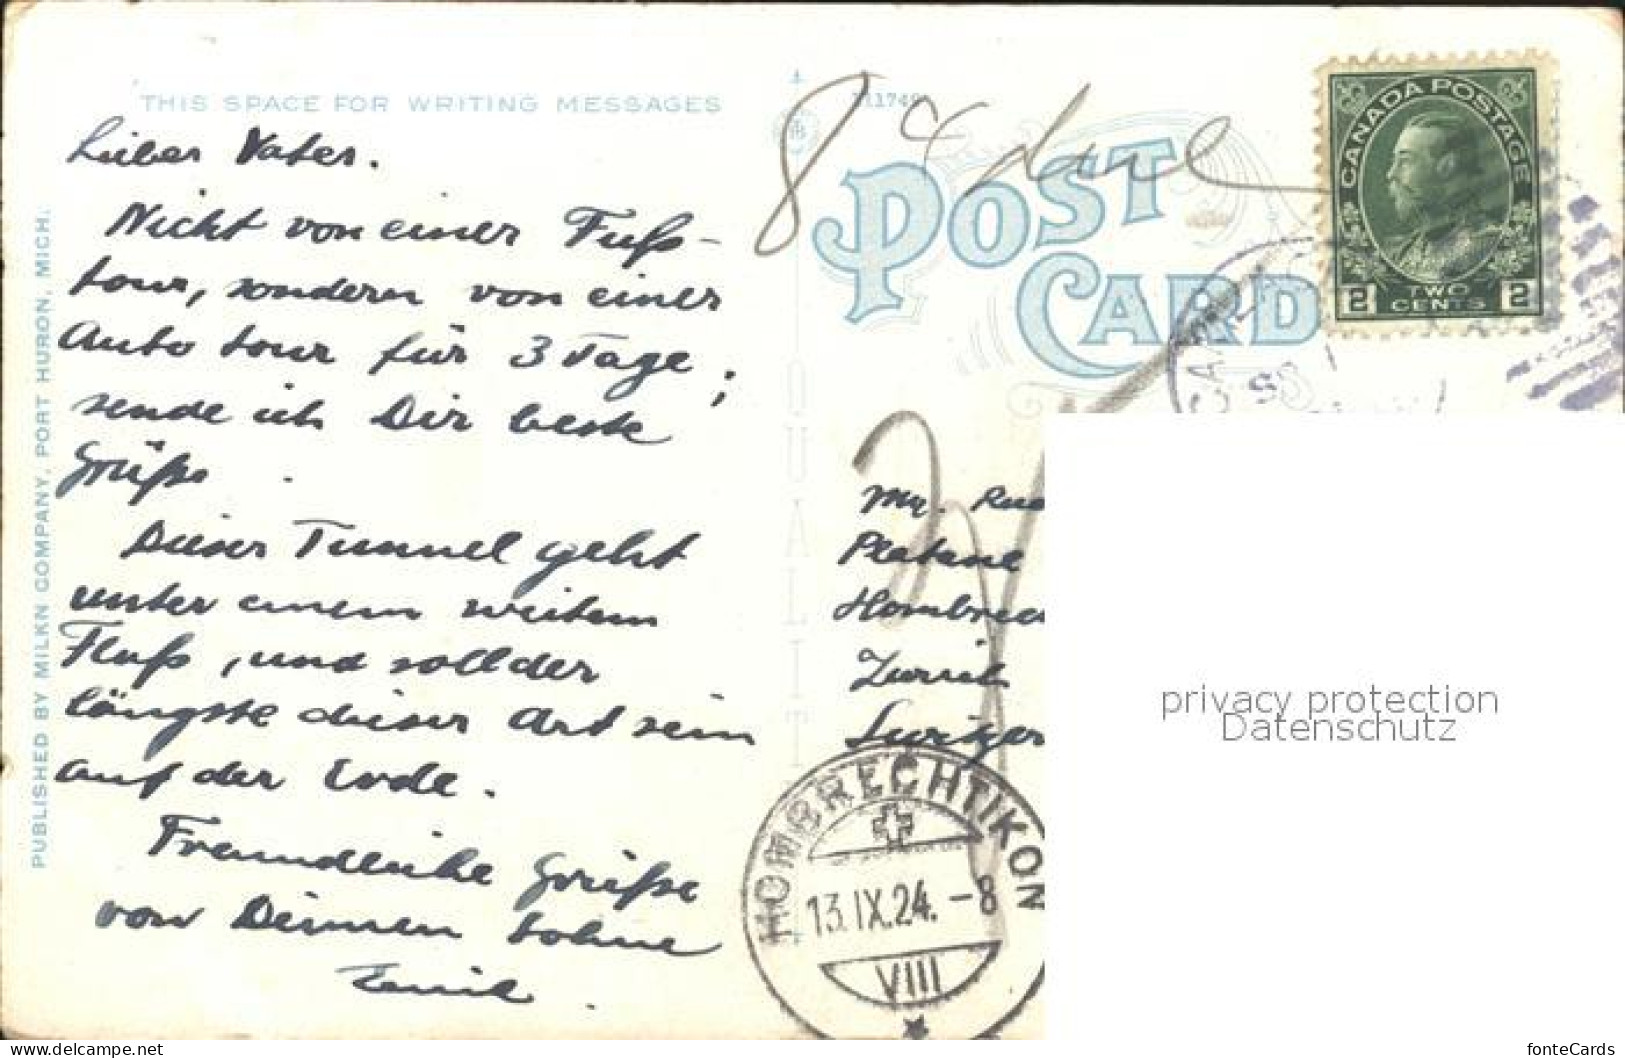 THIS SPACE FOR WRITING MESSAGES
Lieber Vater.
Nicht von einer Fuß-
tour, sondern von einer
Auto tour für 3 Tage,
sende ich Dir beste
Grüße.
Dieser Tunnel geht
unter einem weitem
Fluß, und soll der
längste dieser Art sein
auf der Erde.
Freundliche Grüße
von Deinem Sohne
Emil.
PUBLISHED BY MILKN COMPANY, PORT HURON, MICH.
QUALIT
POST
CARD
CANADA POSTAGE
2 TWO CENTS 2
Mr.
Platane
Hombrec
Zurich
Switzer
HOMBRECHTIKON
13.IX.24.-8
VIII
privacy protection
Datenschutz
www.delcampe.net
fonteCards